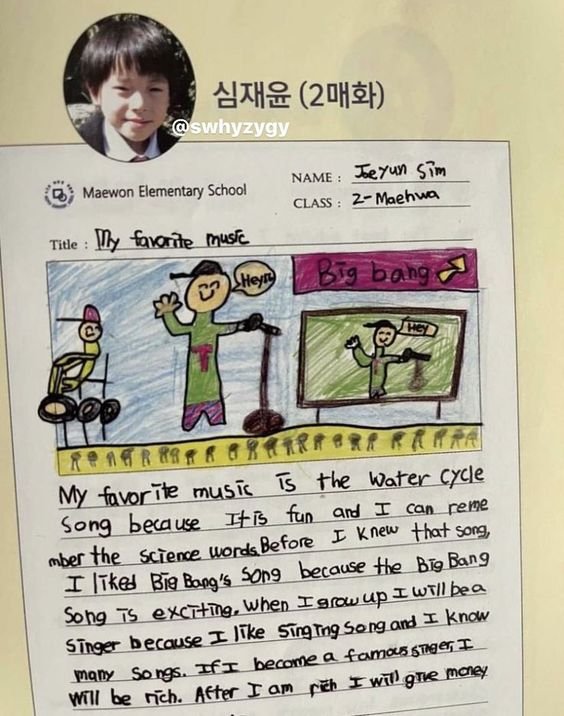 심재윤 (2매화)
@swhyzygy
Maewon Elementary School
NAME : Jaeyun Sim
CLASS : 2-Maehwa
Title : My favorite music
Hey~
Big bang
Hey
My favorite music is the water cycle
song because It is fun and I can reme
mber the science words. Before I knew that song,
I liked Big Bang's song because the Big Bang
song is exciting. When I grow up I will be a
singer because I like singing song and I know
many songs. If I become a famous singer, I
will be rich. After I am rich I will give money